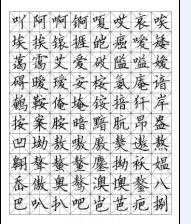 吖阿啊锕嗄哎哀唉
埃挨锿捱皑癌嗳矮
蔼霭艾爱砹隘嗌嫒
碍暧瑷安桉氨庵谙
鹌鞍俺埯铵揞犴岸
按案胺暗黯肮昂盎
凹坳敖嗷廒獒遨熬
翱聱螯鳌鏖拗袄媪
岙傲奥骜澳懊鏊八
巴叭扒吧岜芭疤捌